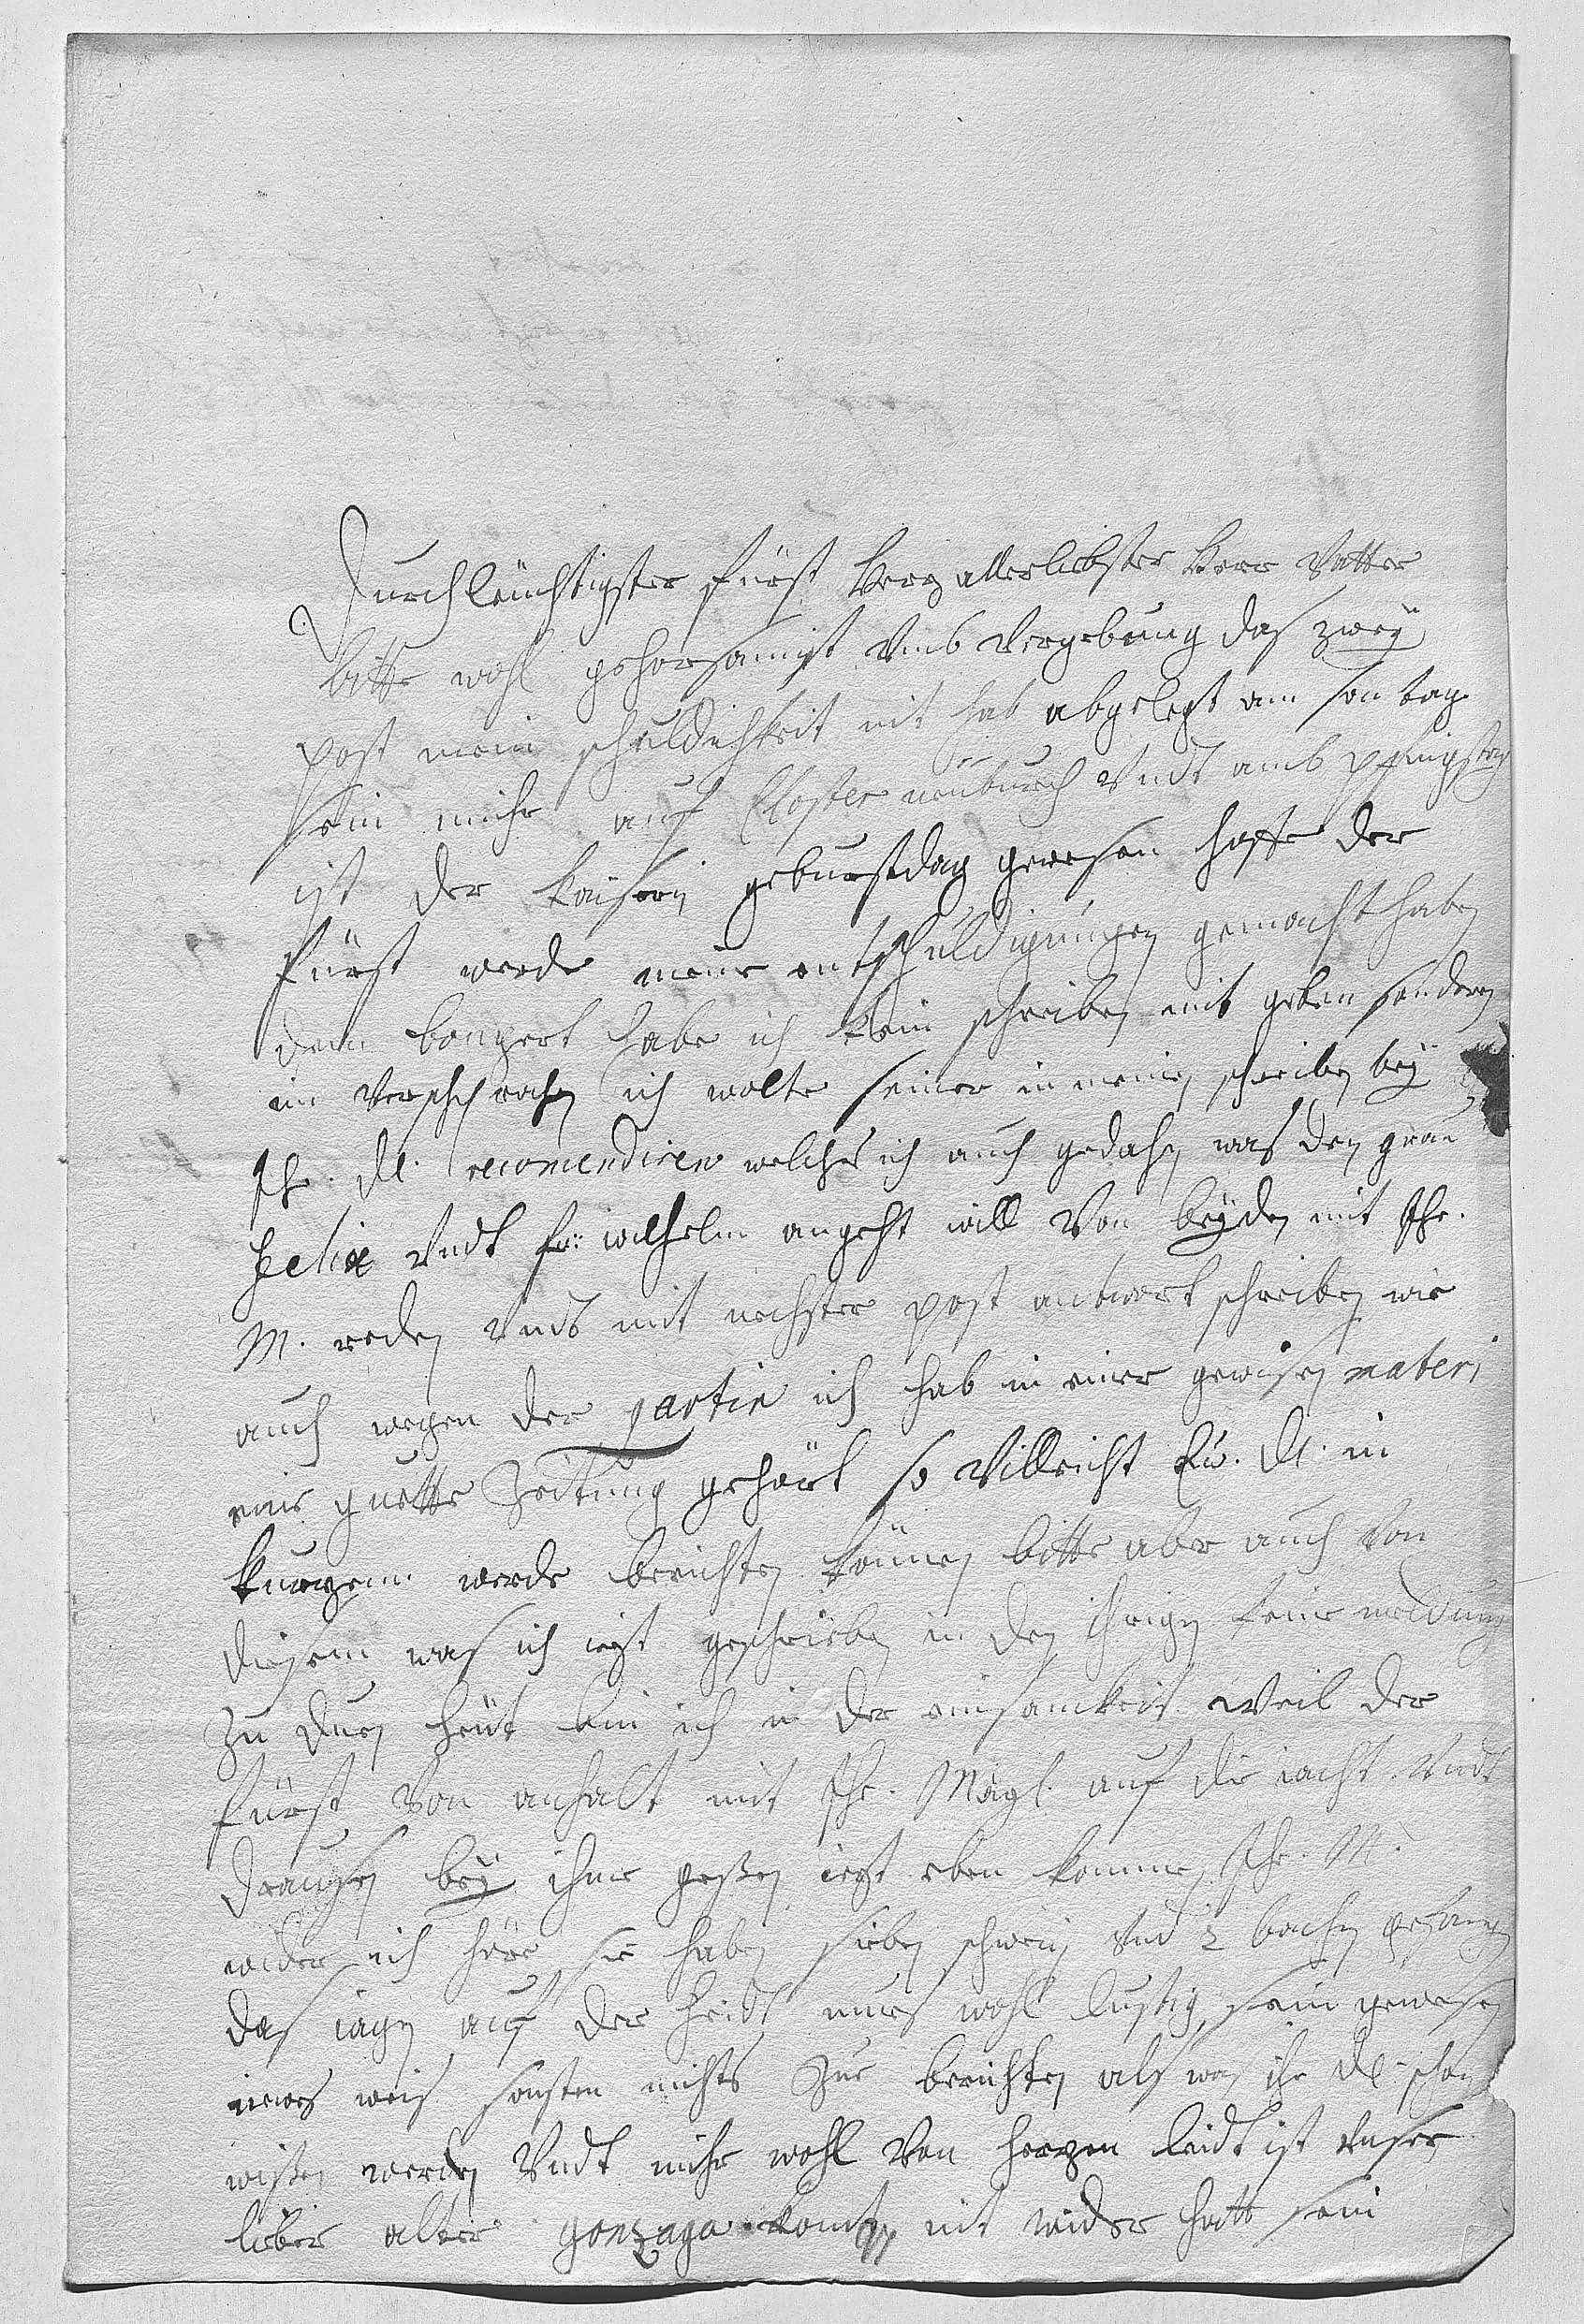 Durchleüchtigster Fürst Herz allerliebster Herr Vatter
bitte wohl gehorsamist umb Vergebung das zwey
post mein schuldichkeit nit hab abgelegt am son tag
sein mihr auf Closter neüburch Vndt ambs pfingstag
ist der Kaiserin geburstdag gewesen hoffe der
Fürst werde meine entschuldigungen gemacht haben
dem bongert habe ich kein schreiben mit geben sonderen
im versprochen ich wolte seiner in meinen schreiben bey
Ihr. Dl. recomendiren welches ich auch gedahn was den grau
Felix Vndt fr: wilhelm angeht will Von beyden mit Ihr.
M. reden Vndt mit nechster post antwort schreiben wie
auch wegen der partie ich hab in einer gewisen materi
eine guette Zeitung gehört so Villeicht Eu. Dl. in
kurzem werde berichten können bitte aber auch Von
diesem was ich iezt geschrieben in den ihrigen keine meldung
zu duen heüt bin ich in der einsamkeit weil der
Fürst Von anhalt mit Ihr. Mayl. auf die iacht Vndt
drausen bey ihme geßen iezt eben kommen Ihr. M.
wider ich höre sie haben sieben schwein Vnd 2 bachen gefangen
das iagen auf der heidt mues wohl lustig sein gewesen
neues weis sonsten nichts Zue berichten als was ihr Dl schon
wißen werden Vndt mihr wohl Von herzen leidt ist unser
lieber alter gonzaga komt nit wider hatt sein